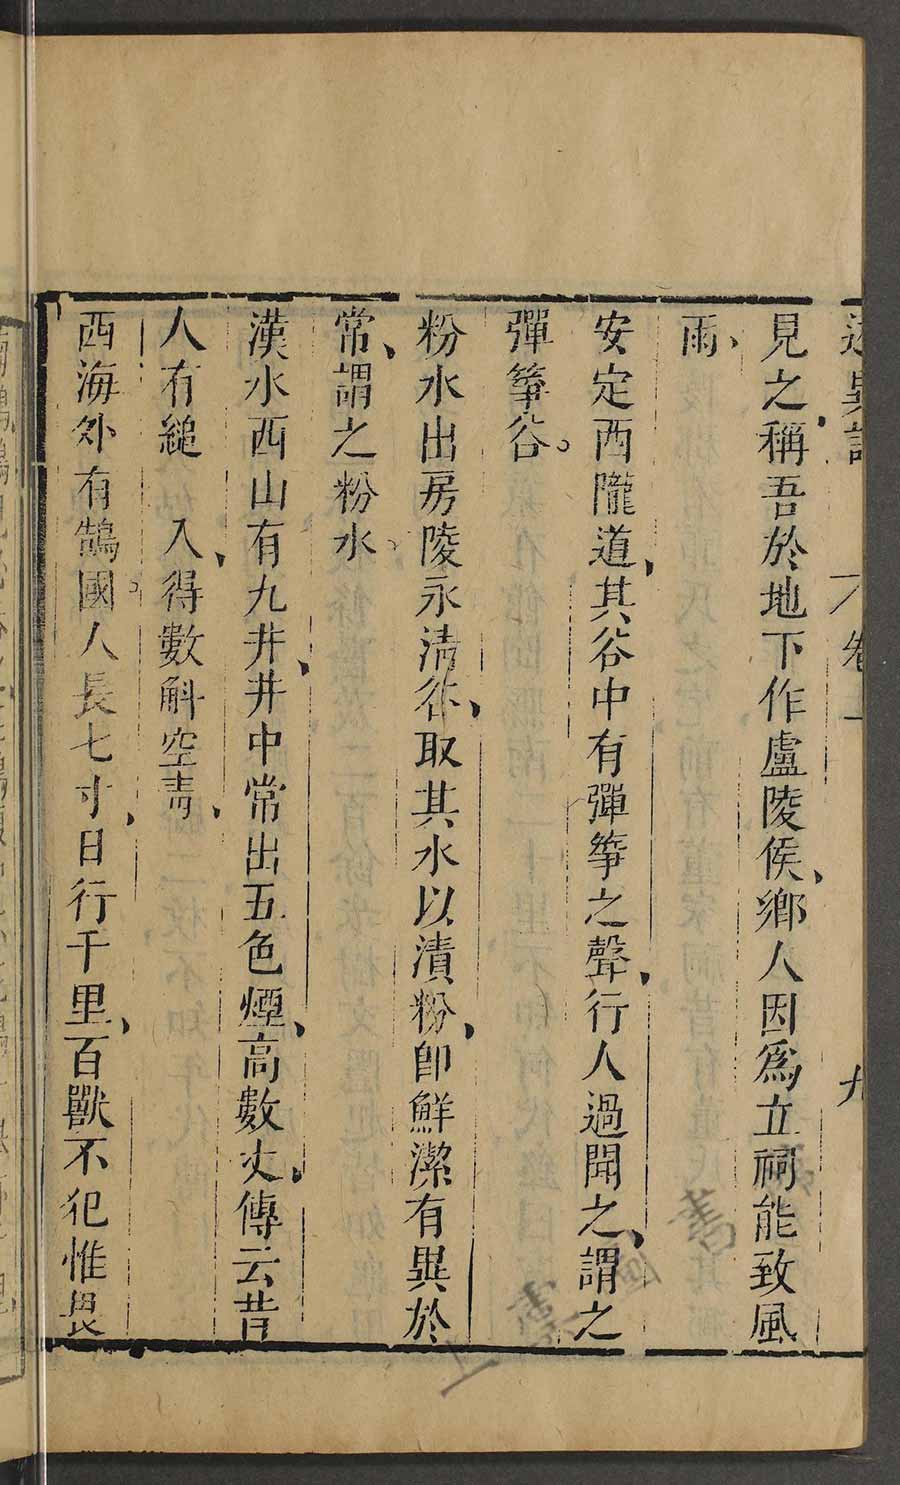 述異記 卷上 九
見之稱吾於地下作盧陵侯鄉人因爲立祠能致風
雨
安定西隴道其谷中有彈箏之聲行人過聞之謂之
彈箏谷
粉水出房陵永清谷取其水以漬粉卽鮮潔有異於
常謂之粉水
漢水西山有九井井中常出五色煙高數丈傳云昔
人有縋 入得數斛空靑
西海外有鵠國人長七寸日行千里百獸不犯惟畏